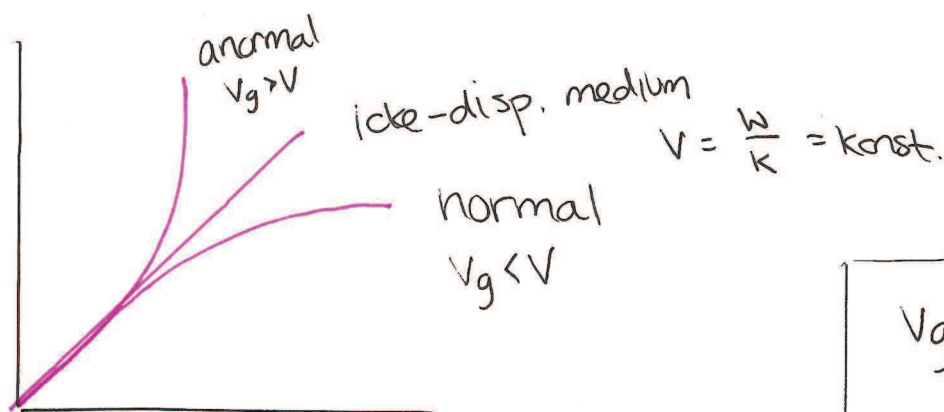 anormal
Vg > V
icke-disp. medium
V = w/k = konst.
normal
Vg < V